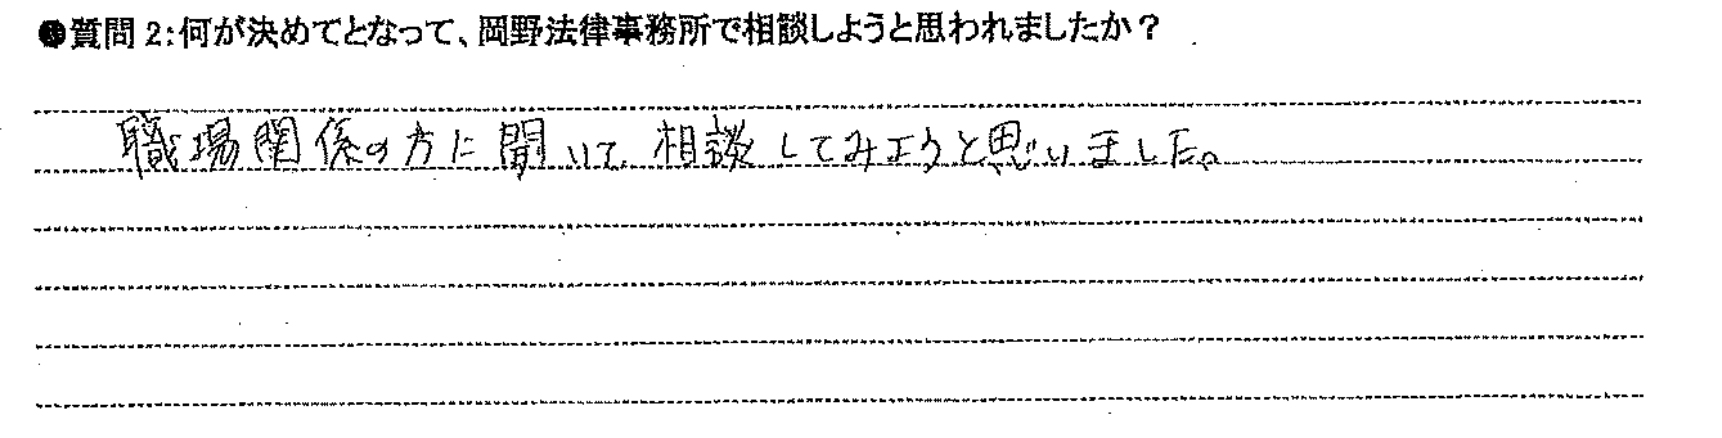 ●質問2:何が決めてとなって、岡野法律事務所で相談しようと思われましたか？
職場関係の方に聞いて相談してみようと思いました。